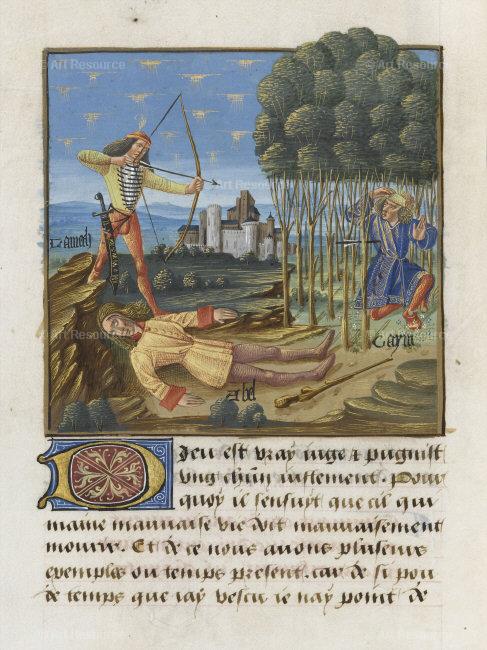 Art Resource
Lamech
Cayn
Abel
Dieu est vray iuge & pugnist
ung chũn iustement. Pour
quoy il sensuyt que cil qui
maine mauuaise vie doit mauuaisement
mourir. Et de ce nous auons plusieurs
exemples ou temps present. car de si pou
de temps que iay vescu ie nay point de